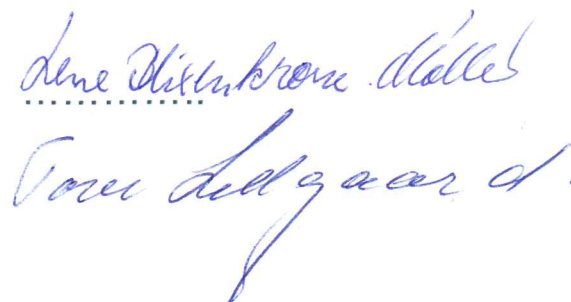 Lene Blixenkrone Møller
Tove Ledgaard